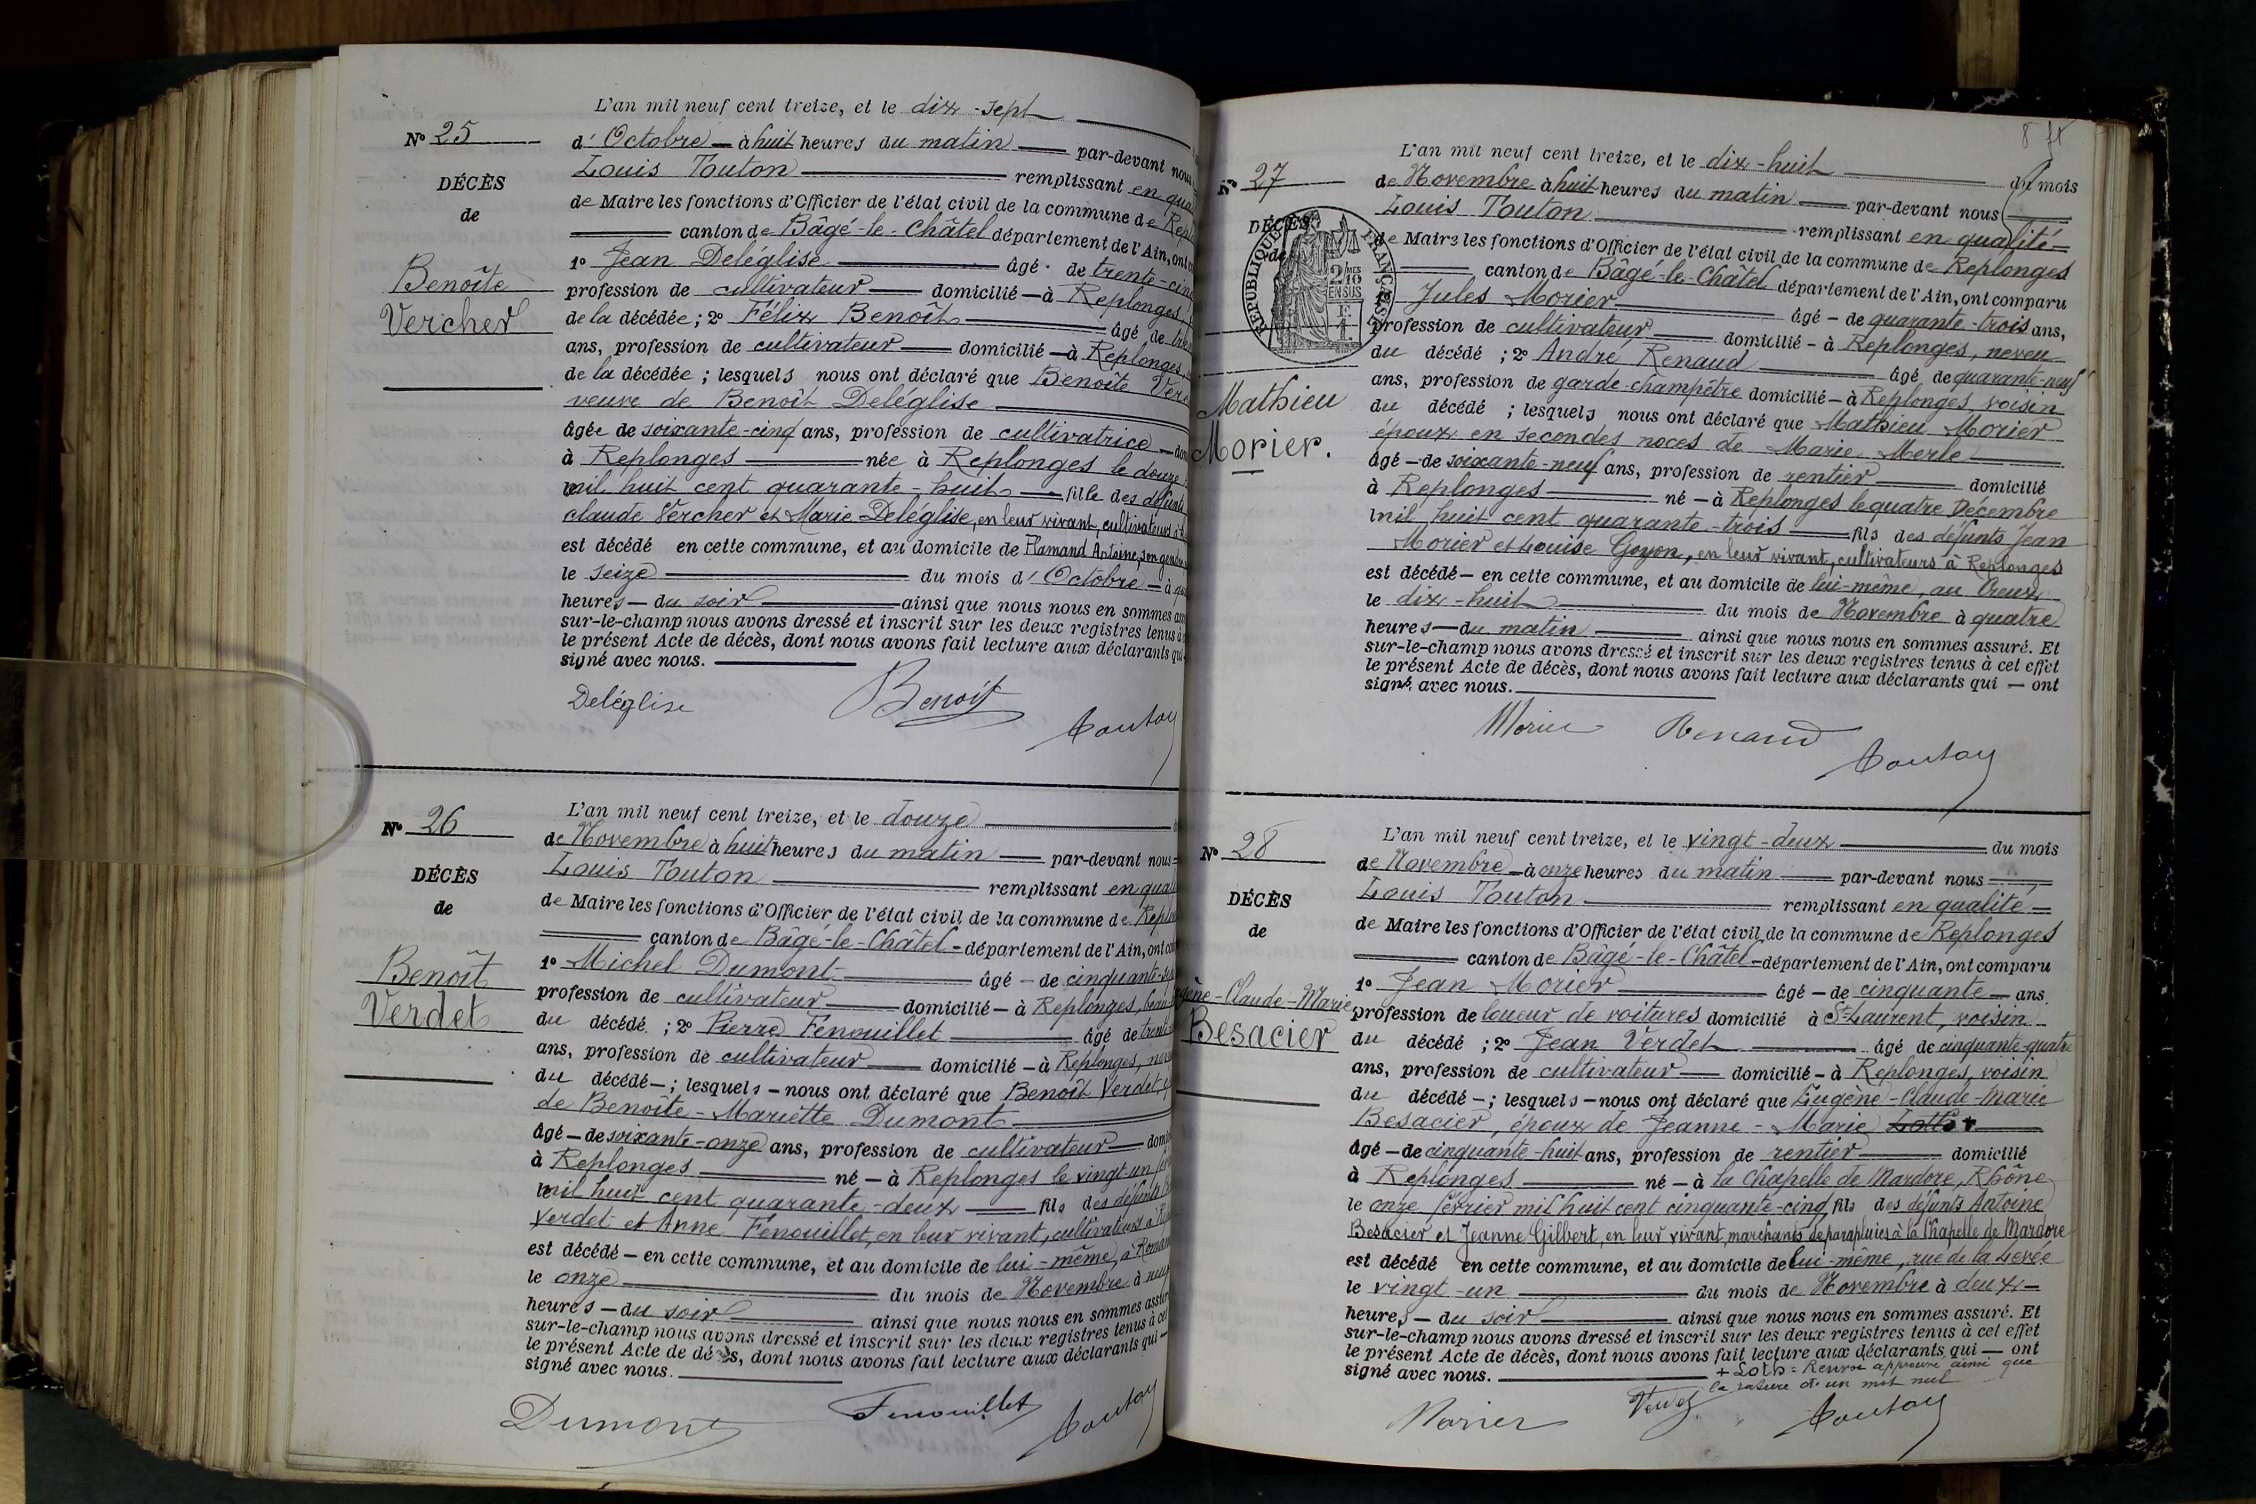 L'an mil neuf cent treize, et le dix-sept
N° 25
d'Octobre à huit heures du matin par-devant nous
Louis Touton remplissant en qua
DÉCÈS
de
de Maire les fonctions d'Officier de l'état civil de la commune de Repl
canton de Bâgé-le-Châtel département de l'Ain, ont
Benoîte
Vercher
1° Jean Deléglise âgé de trente-cinq
profession de cultivateur domicilié à Replonges
de la décédée ; 2° Félix Benoît âgé de
ans, profession de cultivateur domicilié à Replonges
de la décédée ; lesquels nous ont déclaré que Benoîte Ver
veuve de Benoît Deléglise
âgée de soixante-cinq ans, profession de cultivatrice dom
à Replonges née à Replonges le douze
mil huit cent quarante-huit fille des défunts
Claude Vercher et Marie Deléglise, en leur vivant, cultivateurs à
est décédé en cette commune, et au domicile de Flamand Antoine, son gendre
le seize du mois d'Octobre à
heures du soir ainsi que nous nous en sommes ass
sur-le-champ nous avons dressé et inscrit sur les deux registres tenus à
le présent Acte de décès, dont nous avons fait lecture aux déclarants qui
signé avec nous.
Deléglise Benoît Touton
L'an mil neuf cent treize, et le douze
N° 26
de Novembre à huit heures du matin par-devant nous
Louis Touton remplissant en qual
DÉCÈS
de
de Maire les fonctions d'Officier de l'état civil de la commune de Replon
canton de Bâgé-le-Châtel département de l'Ain, ont com
Benoît
Verdet
1° Michel Dumont âgé de cinquante-
profession de cultivateur domicilié à Replonges, beau
du décédé ; 2° Pierre Fenouillet âgé de trente
ans, profession de cultivateur domicilié à Replonges, neveu
du décédé ; lesquels nous ont déclaré que Benoît Verdet,
de Benoîte-Mariette Dumont
âgé de soixante-onze ans, profession de cultivateur domi
à Replonges né à Replonges le vingt un
mil huit cent quarante-deux fils des défunts
Verdet et Anne Fenouillet, en leur vivant, cultivateurs à
est décédé en cette commune, et au domicile de lui-même, à
le onze du mois de Novembre à neuf
heures du soir ainsi que nous nous en sommes assur
sur-le-champ nous avons dressé et inscrit sur les deux registres tenus à cet
le présent Acte de décès, dont nous avons fait lecture aux déclarants qui
signé avec nous.
Dumont Fenouillet Touton
8
L'an mil neuf cent treize, et le dix-huit du mois
N° 27
de Novembre à huit heures du matin par-devant nous
Louis Touton remplissant en qualité
DÉCÈS
de
RÉPUBLIQUE FRANÇAISE
2/10 MES
EN SUS
F.
1
de Maire les fonctions d'Officier de l'état civil de la commune de Replonges
canton de Bâgé-le-Châtel département de l'Ain, ont comparu
Jules Morier âgé de quarante-trois ans,
profession de cultivateur domicilié à Replonges, neveu
du décédé ; 2° André Renaud âgé de quarante-neuf
ans, profession de garde-champêtre domicilié à Replonges, voisin
Mathieu
Morier.
du décédé ; lesquels nous ont déclaré que Mathieu Morier
époux en secondes noces de Marie Merle
âgé de soixante-neuf ans, profession de rentier domicilié
à Replonges né à Replonges le quatre Décembre
mil huit cent quarante-trois fils des défunts Jean
Morier et Louise Goyon, en leur vivant, cultivateurs à Replonges
est décédé en cette commune, et au domicile de lui-même, au Creux
le dix-huit du mois de Novembre à quatre
heures du matin ainsi que nous nous en sommes assuré. Et
sur-le-champ nous avons dressé et inscrit sur les deux registres tenus à cet effet
le présent Acte de décès, dont nous avons fait lecture aux déclarants qui ont
signé avec nous.
Morier Renaud Touton
L'an mil neuf cent treize, et le vingt-deux du mois
N° 28
de Novembre à onze heures du matin par-devant nous
Louis Touton remplissant en qualité
DÉCÈS
de
de Maire les fonctions d'Officier de l'état civil de la commune de Replonges
canton de Bâgé-le-Châtel département de l'Ain, ont comparu
gène-Claude-Marie
Besacier
1° Jean Morier âgé de cinquante ans.
profession de loueur de voitures domicilié à St Laurent, voisin
du décédé ; 2° Jean Verdet âgé de cinquante-quatre
ans, profession de cultivateur domicilié à Replonges, voisin
du décédé ; lesquels nous ont déclaré que Eugène-Claude-Marie
Besacier, époux de Jeanne-Marie +
âgé de cinquante-huit ans, profession de rentier domicilié
à Replonges né à la Chapelle de Mardore, Rhône
le onze février mil huit cent cinquante-cinq fils des défunts Antoine
Besacier et Jeanne Gilbert, en leur vivant, marchands de parapluies à la Chapelle de Mardore
est décédé en cette commune, et au domicile de lui-même, rue de la Levée
le vingt-un du mois de Novembre à deux
heures du soir ainsi que nous nous en sommes assuré. Et
sur-le-champ nous avons dressé et inscrit sur les deux registres tenus à cet effet
le présent Acte de décès, dont nous avons fait lecture aux déclarants qui ont
signé avec nous. + Loth = Renvoi approuvé ainsi que
la rature d'un mot nul
Morier Verdet Touton